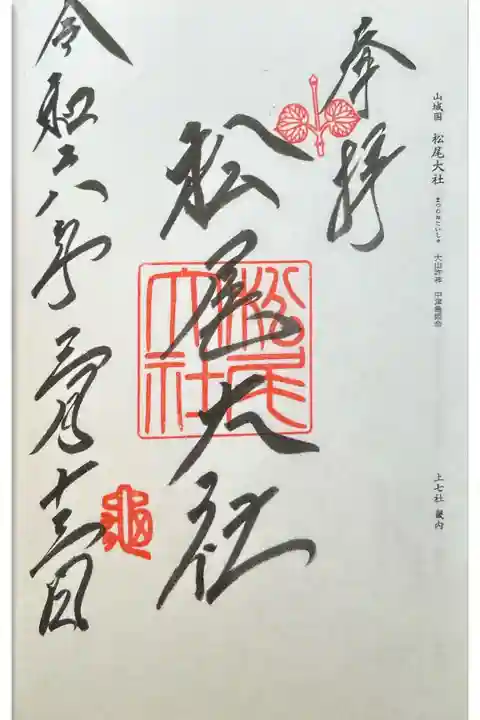 山城国 松尾大社 まつのおたいしゃ 大山咋神 中津島姫命
上七社 畿内
奉拝
松尾大社
松尾大社
令和六年 三月